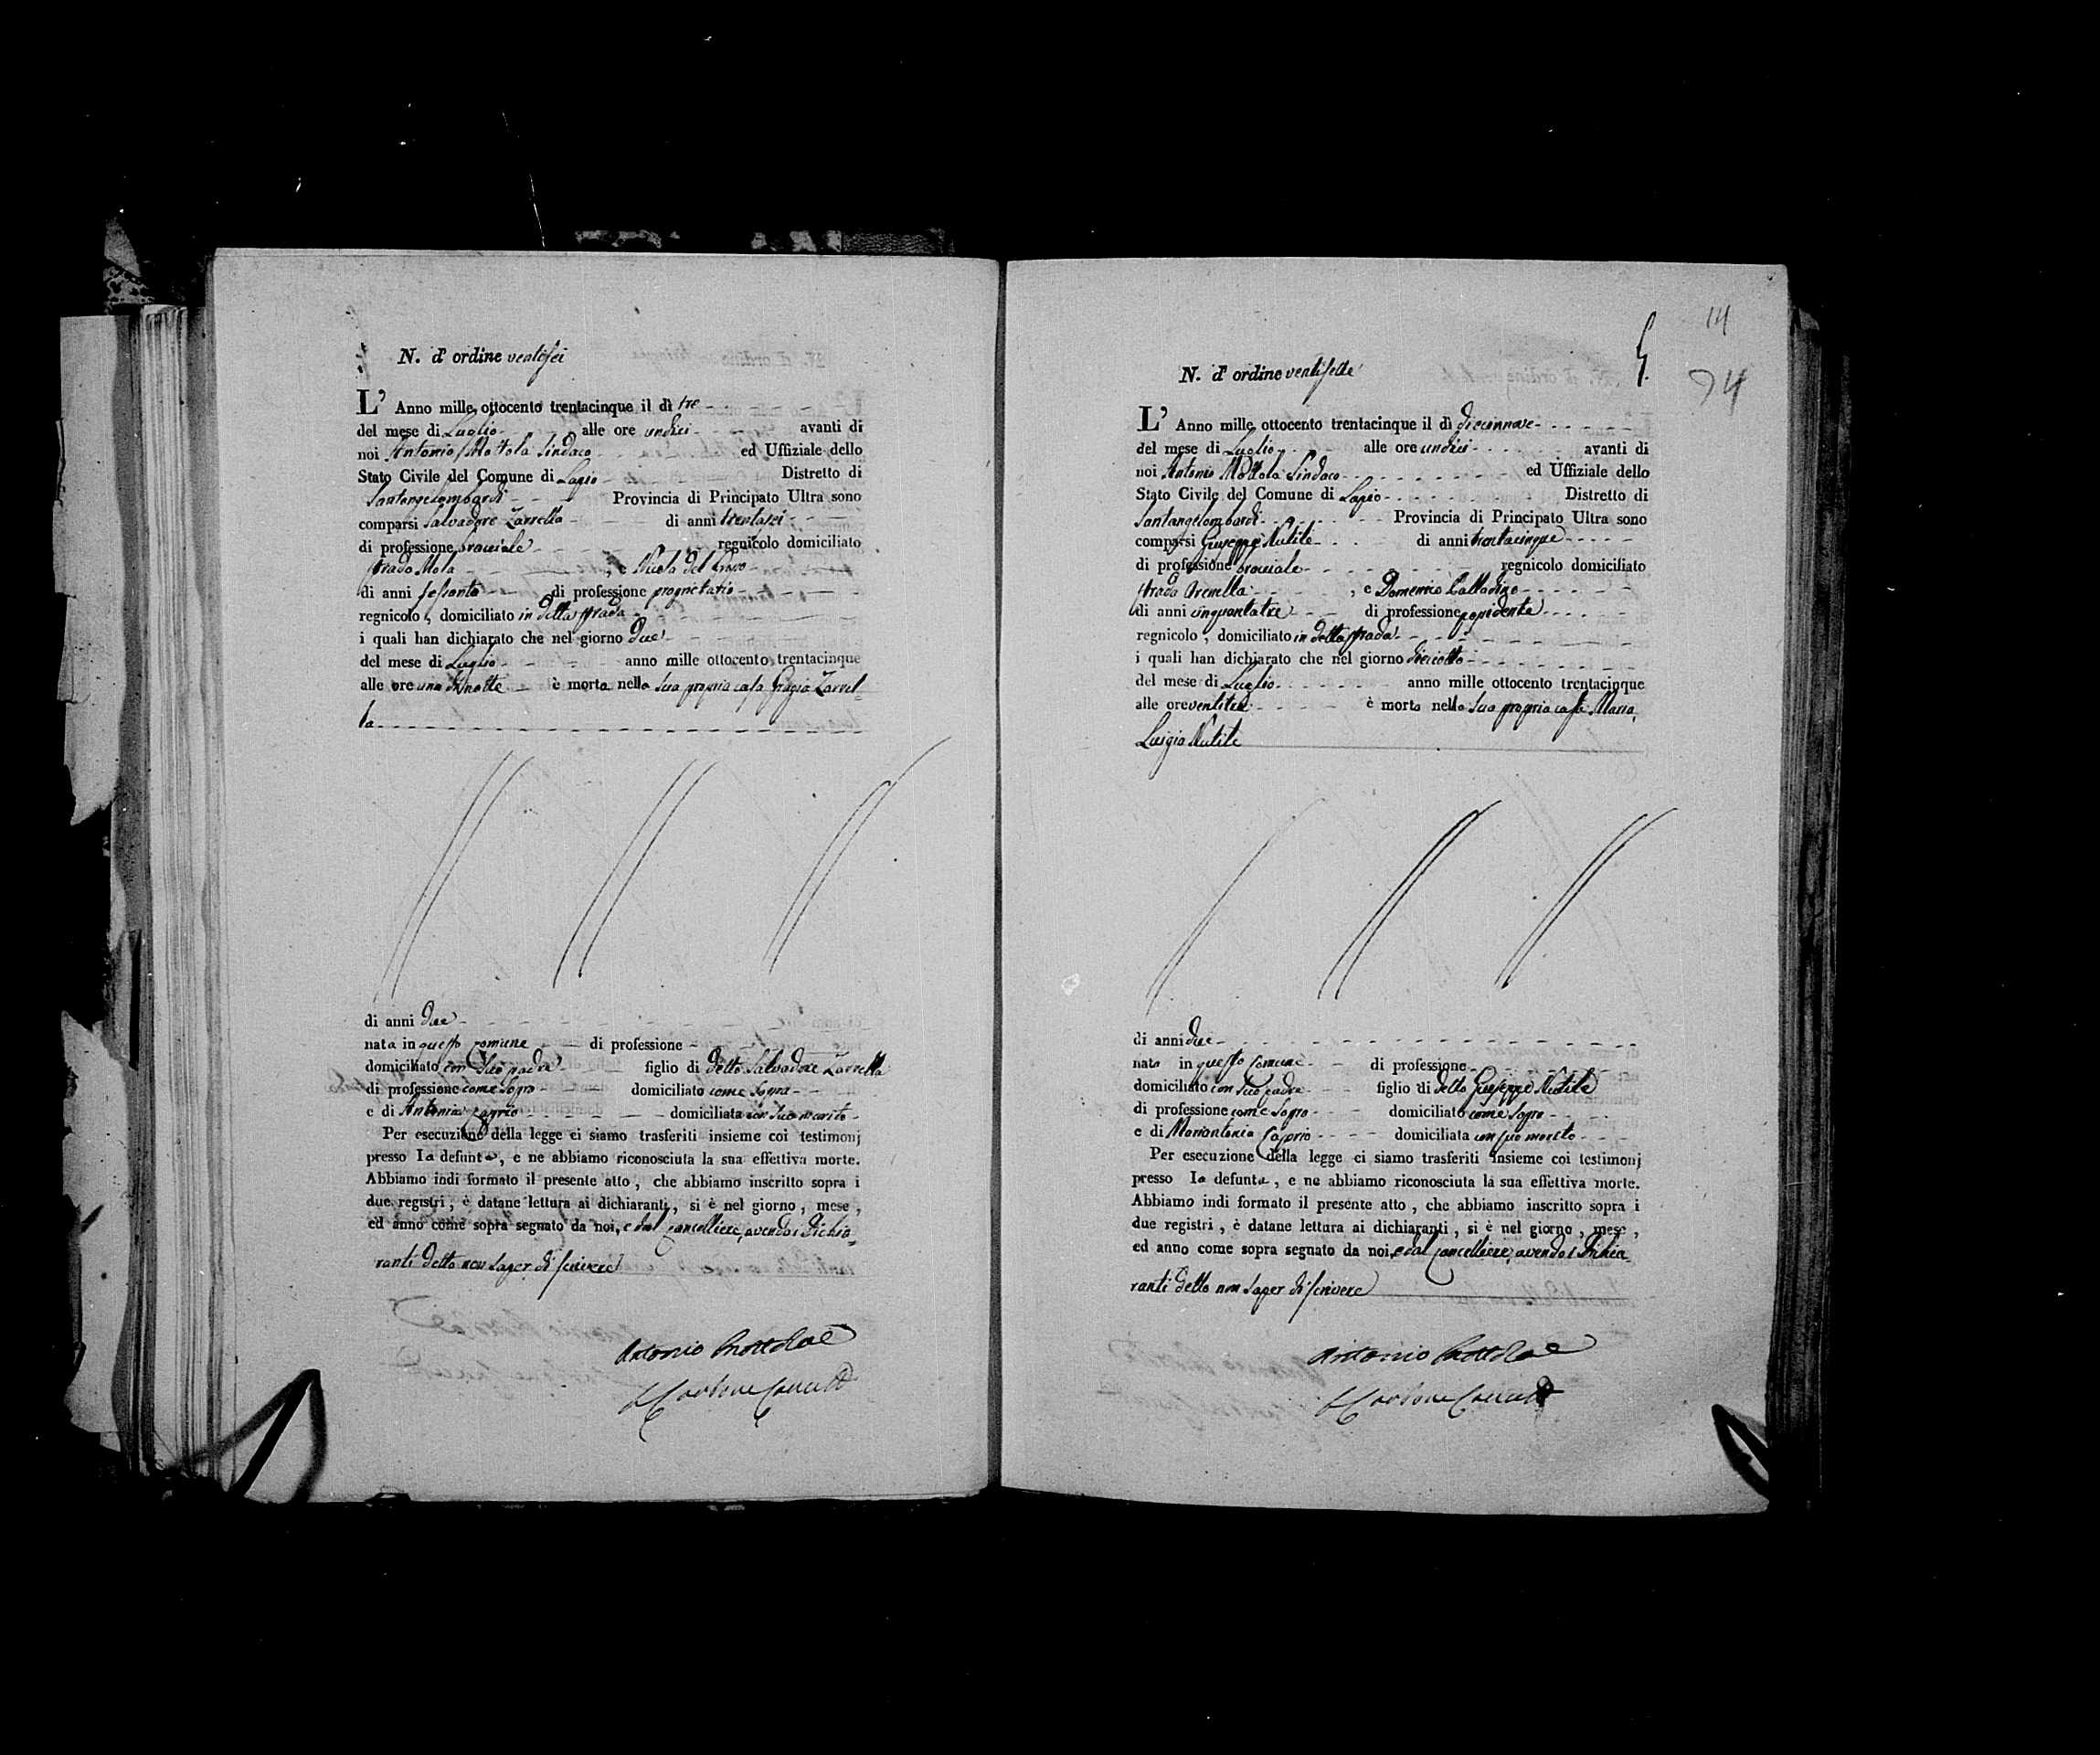 N. d' ordine ventisei
L' Anno mille ottocento trentacinque il dì tre
del mese di Luglio alle ore undici avanti di
noi Antonio Mottola Sindaco ed Uffiziale dello
Stato Civile del Comune di Lapio Distretto di
Santangelombardi Provincia di Principato Ultra sono
comparsi Salvadore Zarrella di anni trentasei
di professione bracciale regnicolo domiciliato
strada Mola , e Nicola del
di anni sessanta di professione proprietario
regnicolo , domiciliato in detta strada
i quali han dichiarato che nel giorno due
del mese di Luglio anno mille ottocento trentacinque
alle ore una di notte è morta nella sua propria casa Grazia Zarrel-
la
di anni due
nata in questo comune di professione
domiciliato con suo padre figlio di detto Salvadore Zarrella
di professione come sopra domiciliato come sopra
e di Antonia Caprio domiciliata con suo marito
Per esecuzione della legge ci siamo trasferiti insieme coi testimonj
presso la defunta, e ne abbiamo riconosciuta la sua effettiva morte.
Abbiamo indi formato il presente atto , che abbiamo inscritto sopra i
due registri , è datane lettura ai dichiaranti, si è nel giorno , mese ,
ed anno come sopra segnato da noi, e dal cancelliere, avendo i dichia-
ranti detto non saper di scrivere
Antonio Mottola
Carbone
N. d' ordine ventisette
14
94
L' Anno mille ottocento trentacinque il dì diecinnove
del mese di Luglio alle ore undici avanti di
noi Antonio Mottola Sindaco ed Uffiziale dello
Stato Civile del Comune di Lapio Distretto di
Santangelombardi Provincia di Principato Ultra sono
comparsi Giuseppe Nutile di anni trentacinque
di professione bracciale regnicolo domiciliato
strada , e Domenico Calladino
di anni cinquantatre di professione
regnicolo , domiciliato in detta strada
i quali han dichiarato che nel giorno dieciotto
del mese di Luglio anno mille ottocento trentacinque
alle ore ventitre è morta nella sua propria casa Maria
Luigia Nutile
di anni due
nata in questo Comune di professione
domiciliato con suo padre figlio di detto Giuseppe Nutile
di professione come sopra domiciliato come sopra
e di Mariantonia Caprio domiciliata con suo marito
Per esecuzione della legge ci siamo trasferiti insieme coi testimonj
presso la defunta , e ne abbiamo riconosciuta la sua effettiva morte.
Abbiamo indi formato il presente atto , che abbiamo inscritto sopra i
due registri , è datane lettura ai dichiaranti , si è nel giorno , mese ,
ed anno come sopra segnato da noi, e dal Cancelliere, avendo i dichia-
ranti detto non saper di scrivere
Antonio Mottola
Carbone